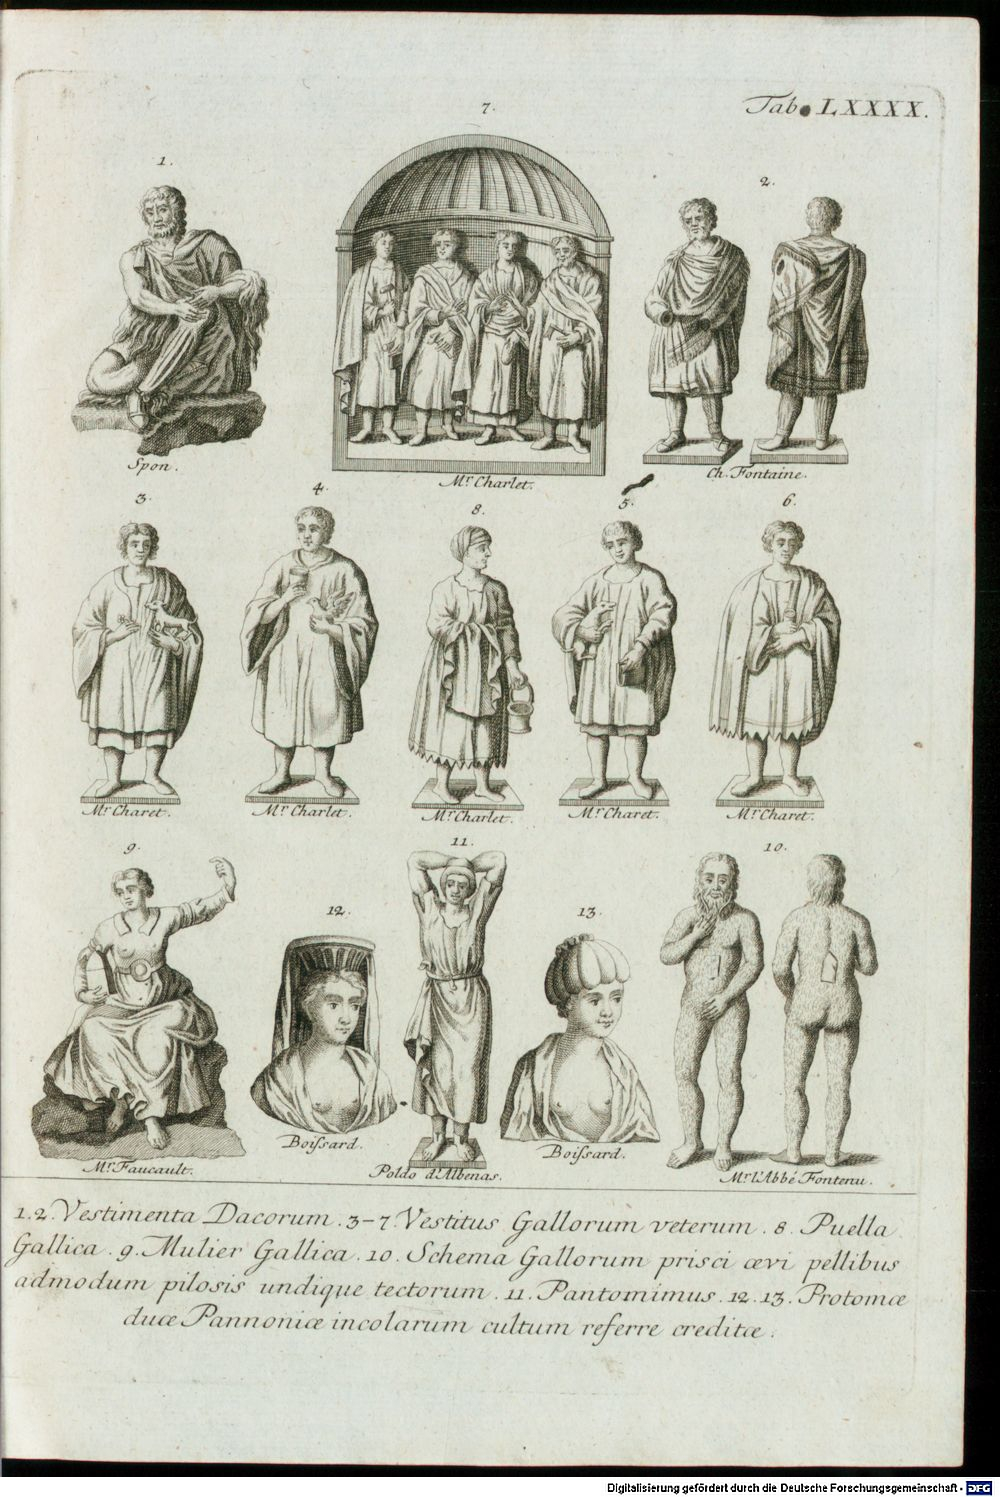 Tab. LXXXX.
7.
1.
2.
Spon.
Mr Charlet.
Ch. Fontaine.
3.
4.
8.
5.
6.
Mr Charet.
Mr Charlet.
Mr Charlet.
Mr Charet.
Mr Charet.
9.
11.
10.
12.
13.
Mr Faucault.
Boiſsard.
Poldo d'Albenas.
Boiſsard.
Mr l'Abbé Fontenu.
1.2. Vestimenta Dacorum. 3-7. Vestitus Gallorum veterum. 8. Puella
Gallica. 9. Mulier Gallica. 10. Schema Gallorum prisci ævi pellibus
admodum pilosis undique tectorum. 11. Pantomimus. 12. 13. Protomæ
duæ Pannoniæ incolarum cultum referre creditæ.
Digitalisierung gefördert durch die Deutsche Forschungsgemeinschaft - DFG